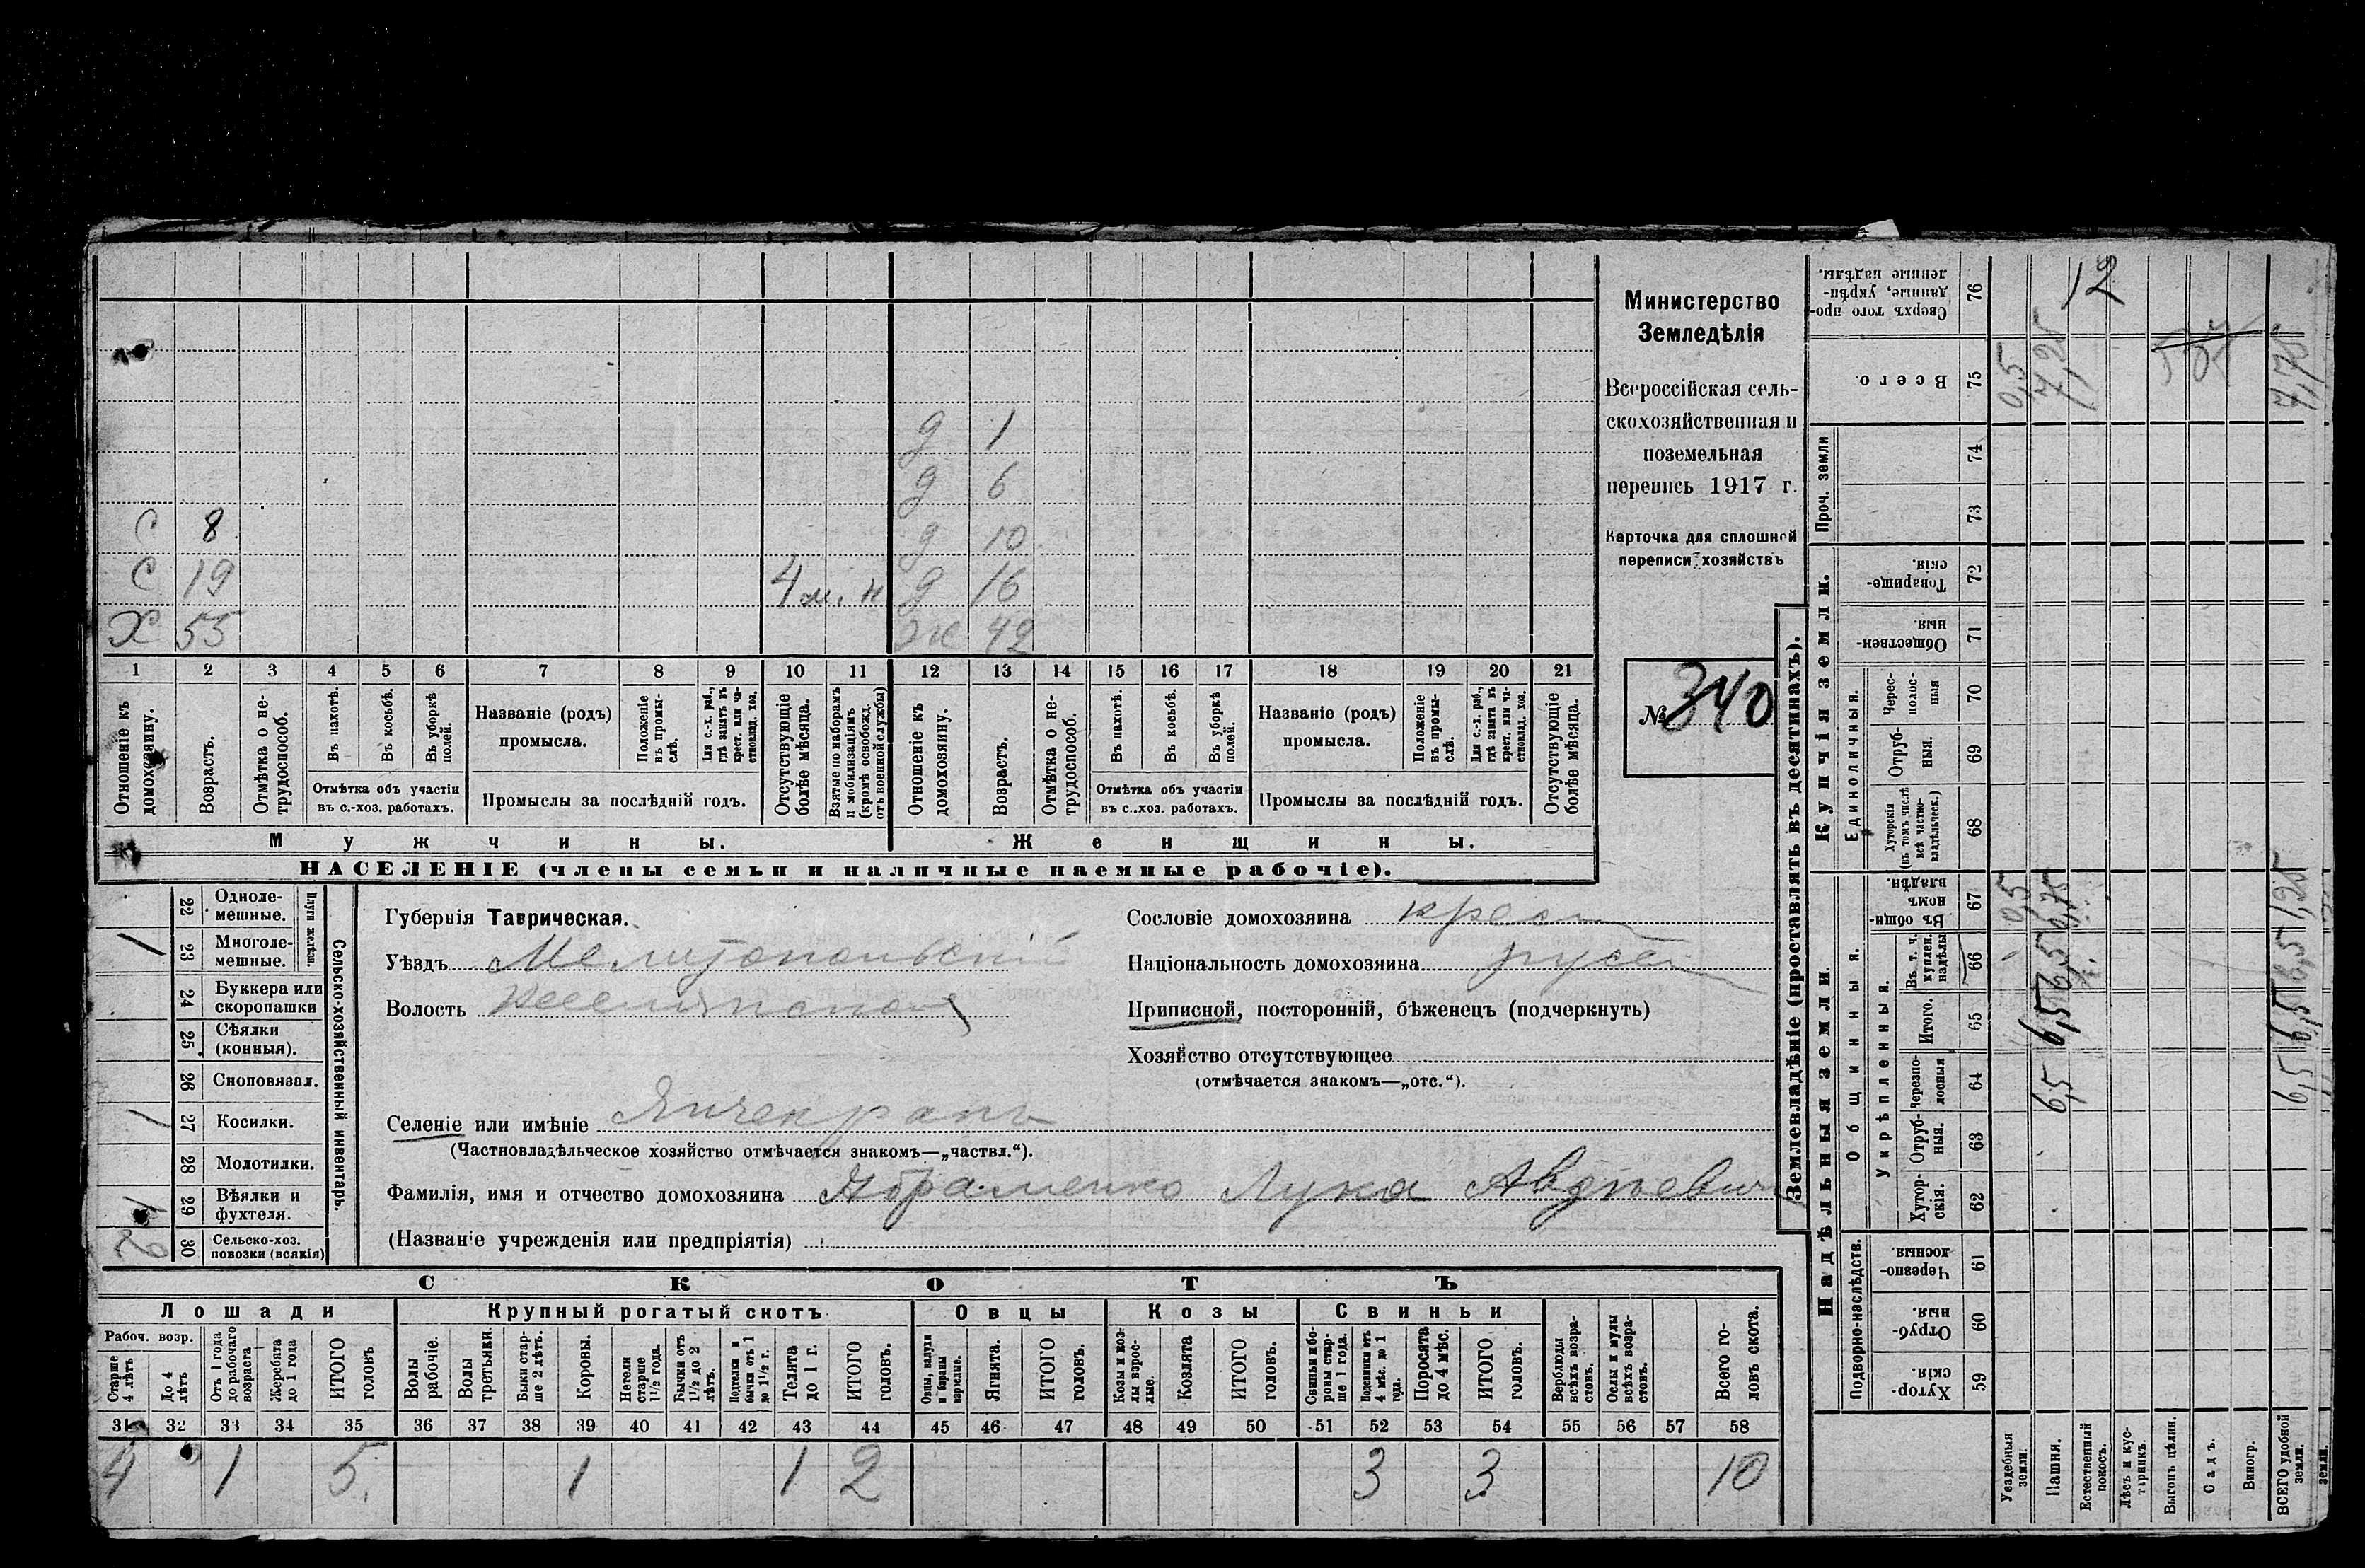 д 1
д 6
С 8 д 10
С 19 4 м. н д 16
Х 55 ж 42
1 2 3 4 5 6 7 8 9 10 11 12 13 14 15 16 17 18 19 20 21
Отношеніе къ домохозяину.
Возрастъ.
Отмѣтка о нетрудоспособ.
Въ пахотѣ.
Въ косьбѣ.
Въ уборкѣ полей.
Отмѣтка объ участіи въ с.-хоз. работахъ.
Названіе (родъ) промысла.
Положеніе въ промыслѣ.
Для с.-х. раб., гдѣ занятъ въ крест. или частновлад. хоз.
Промыслы за послѣдній годъ.
Отсутствующіе болѣе мѣсяца.
Взятые по наборамъ и мобилизаціямъ (кромѣ освобожд. отъ военной службы)
Отношеніе къ домохозяину.
Возрастъ.
Отмѣтка о нетрудоспособ.
Въ пахотѣ.
Въ косьбѣ.
Въ уборкѣ полей.
Отмѣтка объ участіи въ с.-хоз. работахъ.
Названіе (родъ) промысла.
Положеніе въ промыслѣ.
Для с.-х. раб., гдѣ занята въ крест. или частновлад. хоз.
Промыслы за послѣдній годъ.
Отсутствующіе болѣе мѣсяца.
Мужчины. Женщины.
НАСЕЛЕНІЕ (члены семьи и наличные наемные рабочіе).
Министерство
Земледѣлія
Всероссійская сель-
скохозяйственная и
поземельная
перепись 1917 г.
Карточка для сплошной
переписи хозяйствъ
№ 340
22 Одноле-мешные.
23 Многоле-мешные. 1
Плуги желѣзн.
24 Буккера или скоропашки
25 Сѣялки (конныя).
26 Сноповязал.
27 Косилки. 1
28 Молотилки.
29 Вѣялки и фухтеля. 1
30 Сельско-хоз. повозки (всякія) 2
Сельско-хозяйственный инвентарь.
Губернія Таврическая.
Уѣздъ Мелитопольскій
Волость
Селеніе или имѣніе Янчекракъ
(Частновладѣльческое хозяйство отмѣчается знакомъ—„частвл.“).
Фамилія, имя и отчество домохозяина Абраменко Лука Авдѣевич
(Названіе учрежденія или предпріятія)
Сословіе домохозяина крест
Національность домохозяина русск
Приписной, посторонній, бѣженецъ (подчеркнуть)
Хозяйство отсутствующее
(отмѣчается знакомъ—„отс.“).
СКОТЪ
Лошади Крупный рогатый скотъ Овцы Козы Свиньи
Рабоч. возр.
Старше 4 лѣтъ
До 4 лѣтъ
Отъ 1 года до рабочаго возраста
Жеребята до 1 года
ИТОГО головъ
Волы рабочіе.
Волы третьяки.
Быки старше 2 лѣтъ.
Коровы.
Нетели старше 1½ года.
Бычки отъ 1½ до 2 лѣтъ.
Подтелки и бычки отъ 1 до 1½ г.
Телята до 1 г.
ИТОГО головъ.
Овцы, валухи и бараны взрослые.
Ягнята.
ИТОГО головъ.
Козы и козлы взрослые.
Козлята
ИТОГО головъ.
Свиньи и боровы старше 1 года.
Подсвинки отъ 4 мѣс. до 1 года.
Поросята до 4 мѣс.
ИТОГО головъ.
Верблюды всѣхъ возрастовъ.
Ослы и мулы всѣхъ возрастовъ.
Всего головъ скота.
31 32 33 34 35 36 37 38 39 40 41 42 43 44 45 46 47 48 49 50 51 52 53 54 55 56 57 58
4 1 5 1 1 2 3 3 10
Землевладѣніе (проставлять въ десятинахъ).
Надѣльныя земли. Купчія земли. Проч. земли
Подворно-наслѣдств.
Общинныя.
Укрѣпленныя.
Единоличныя.
Хуторскія. 59
Отрубныя. 60
Черезполосныя 61
Хуторскія. 62
Отрубныя. 63
Черезполосныя 64
Итого. 65
Въ т. ч. куплен. надѣлы 66
Въ общинномъ владѣн. 67
Хуторскія (въ томъ числѣ всѣ частновладѣльческ.) 68
Отрубныя. 69
Череcполосныя 70
Общественныя 71
Товарищескія. 72
73
74
Всего. 75
Сверхъ того проданные, укрѣпленные надѣлы. 76
Усадебныя земли. 0,5 0,5
Пашня. 6,5 6,5 6,5 0,75 7,25
Естественный покосъ. 12
Лѣсъ и кустарникъ.
Выгонъ цѣлин.
Садъ.
Виногр.
ВСЕГО удобной земли. 6,5 6,5 6,5 1,25 7,75
земли.